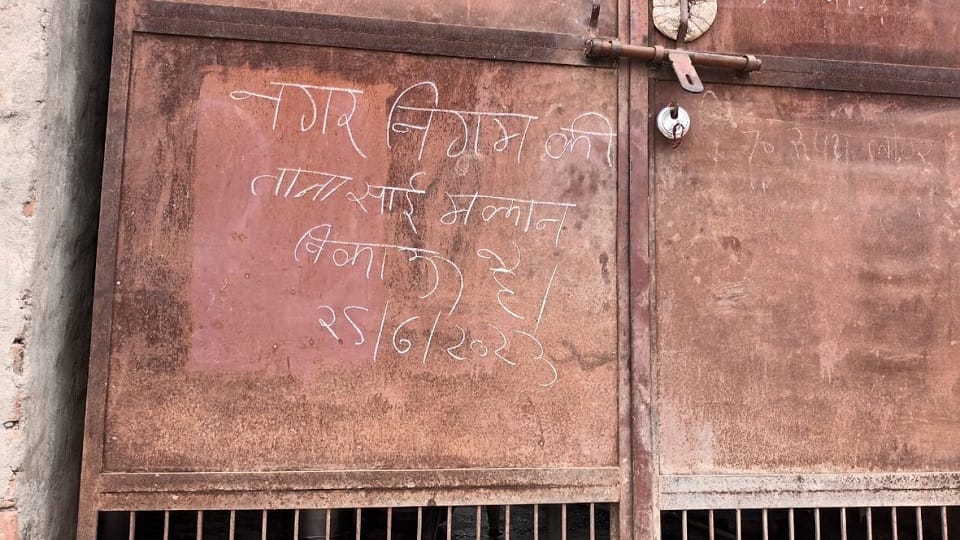 नगर निगम की
ताना साई मकान
बिकाऊ है।
२५/६/२०२३